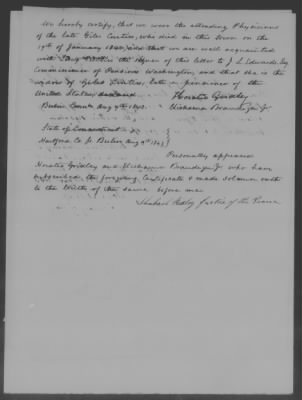 We hereby certify, that we were the attending Physicians
of the late Giles Curtiss, who died in this town on the
19th of January 1842, and that we are well acquainted
with the signer of this letter to J. L. Edwards Esq
Commissioner of Pensions Washington, and that she is the
widow of Giles Curtiss, late a pensioner of the
United States
Horatio Gridley
Berlin Conn. Aug 9th 1843.
State of Connecticut
Hartford Co ss Berlin Aug 9th 1843
Personally appeared
Horatio Gridley and Brandegee Jr who have
subscribed the foregoing Certificate & made solemn oath
to the truth of the same before me
Justice of the Peace